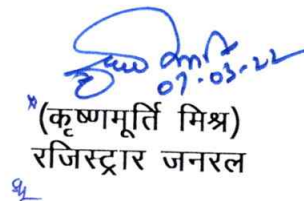 07-03-22
(कृष्णमूर्ति मिश्र)
रजिस्ट्रार जनरल